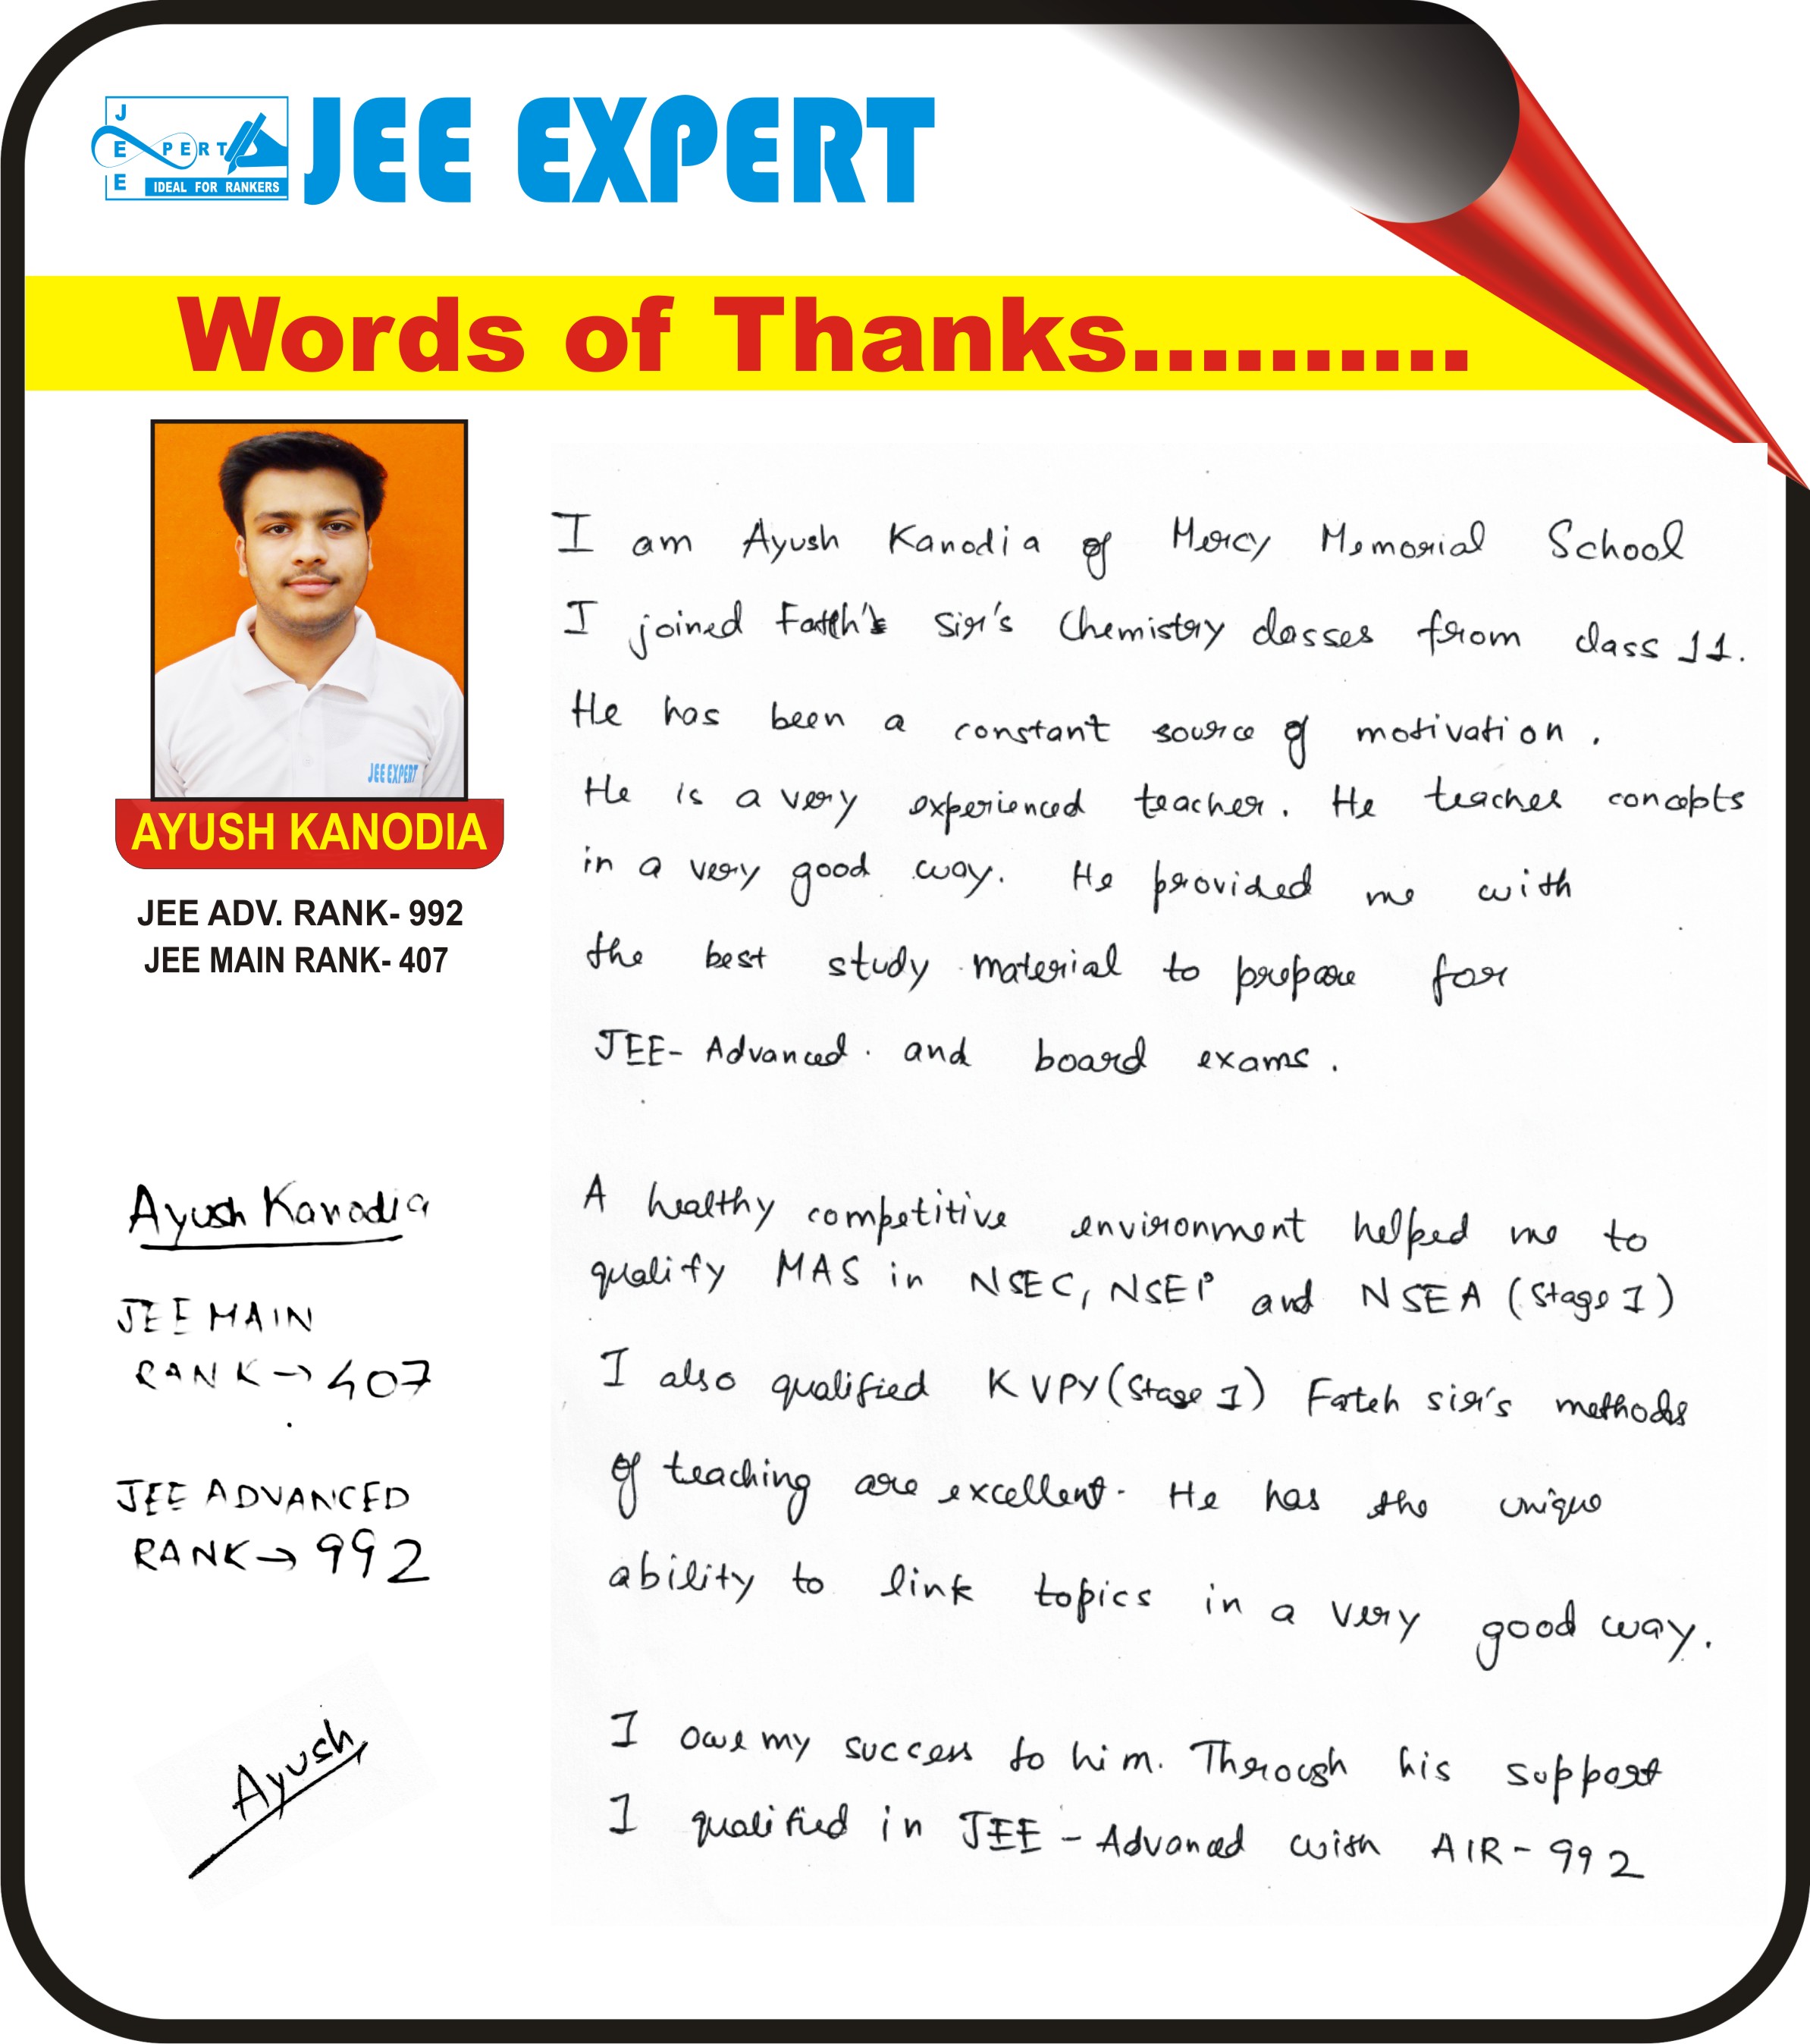 J
E PERT
E IDEAL FOR RANKERS
JEE EXPERT
Words of Thanks..........
JEE EXPERT
AYUSH KANODIA
JEE ADV. RANK- 992
JEE MAIN RANK- 407
Ayush Kanodia
JEE MAIN
RANK → 407
JEE ADVANCED
RANK → 992
Ayush
I am Ayush Kanodia of Mercy Memorial School
I joined Fateh's Sir's Chemistry classes from class 11.
He has been a constant source of motivation.
He is a very experienced teacher. He teaches concepts
in a very good way. He provided me with
the best study material to prepare for
JEE- Advanced. and board exams.
A healthy competitive environment helped me to
qualify MAS in NSEC, NSEP and NSEA (Stage 1)
I also qualified KVPY (Stage 1) Fateh sir's methods
of teaching are excellent. He has the unique
ability to link topics in a very good way.
I owe my success to him. Through his support
I qualified in JEE - Advanced with AIR - 992